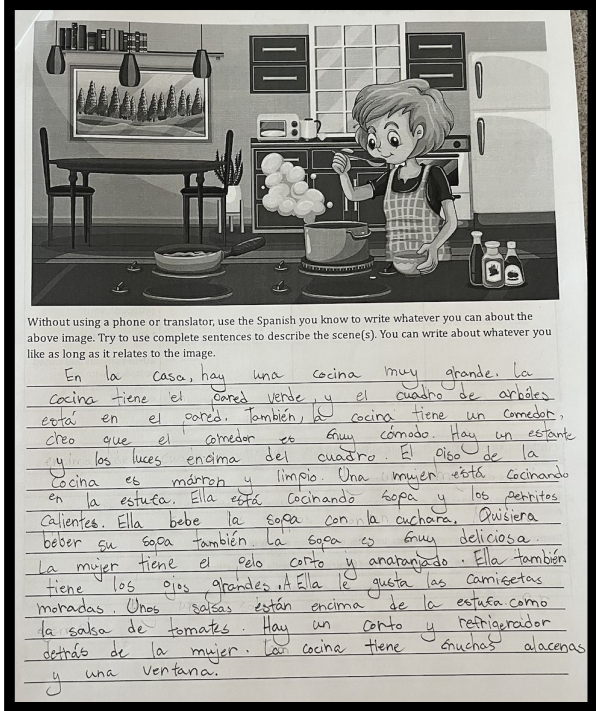 Without using a phone or translator, use the Spanish you know to write whatever you can about the
above image. Try to use complete sentences to describe the scene(s). You can write about whatever you
like as long as it relates to the image.
En la casa, hay una cocina muy grande. La
cocina tiene el pared verde, y el cuadro de arboles
está en el pared. También, la cocina tiene un comedor,
creo que el comedor es muy cómodo. Hay un estante
y los luces encima del cuadro. El piso de la
cocina es márron y limpio. Una mujer está cocinando
en la estufa. Ella está cocinando sopa y los perritos
calientes. Ella bebe la sopa con la cuchara. Quisiera
beber su sopa también. La sopa es muy deliciosa.
La mujer tiene el pelo corto y anaranjado. Ella también
tiene los ojos grandes. A Ella le gusta las camisetas
moradas. Unos salsas están encima de la estufa como
la salsa de tomates. Hay un corto y refrigerador
detrás de la mujer. La cocina tiene muchas alacenas
y una ventana.